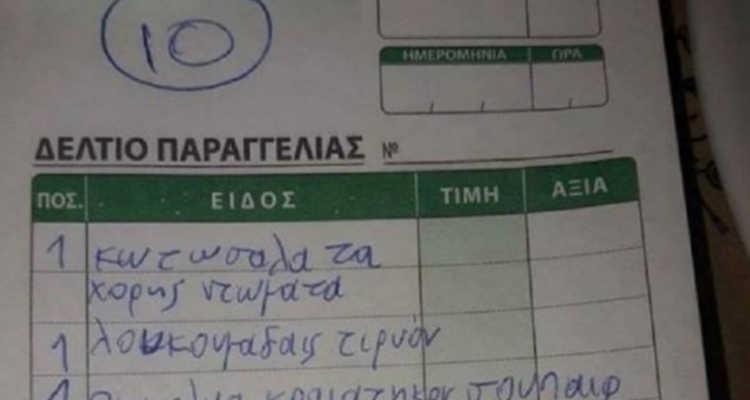 10
ΗΜΕΡΟΜΗΝΙΑ ΩΡΑ
ΔΕΛΤΙΟ ΠΑΡΑΓΓΕΛΙΑΣ №
ΠΟΣ. ΕΙΔΟΣ ΤΙΜΗ ΑΞΙΑ
1 κωτωσαλατα
χορης ντωματα
1 λουκουμαδαις τιρυόν
1